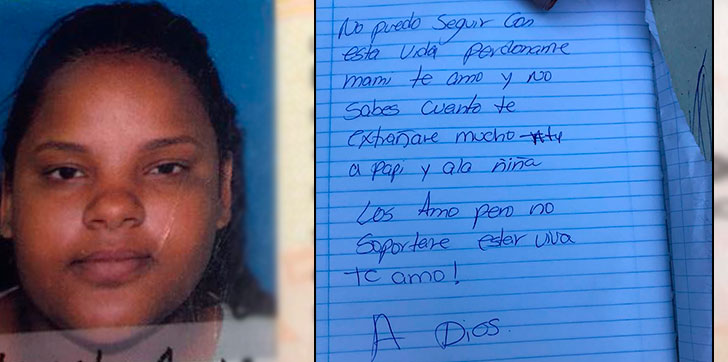 No puedo Seguir Con
esta Vida perdoname
mami te amo y No
Sabes Cuanto te
extrañare mucho ty
a papi y ala ñina
Los Amo pero no
Soportare estar viva
te amo!
A Dios.